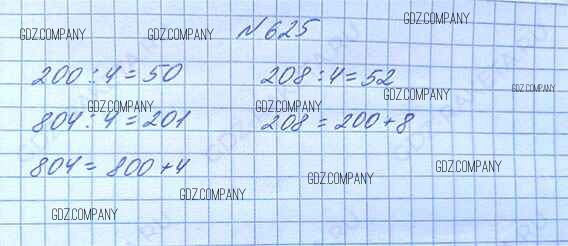 GDZ.COMPANY GDZ.COMPANY N 625 GDZ.COMPANY
200 : 4 = 50 208 : 4 = 52
GDZ.COMPANY GDZ.COMPANY GDZ.COMPANY GDZ.COMPANY
804 : 4 = 201 208 = 200 + 8
804 = 800 + 4 GDZ.COMPANY GDZ.COMPANY
GDZ.COMPANY GDZ.COMPANY